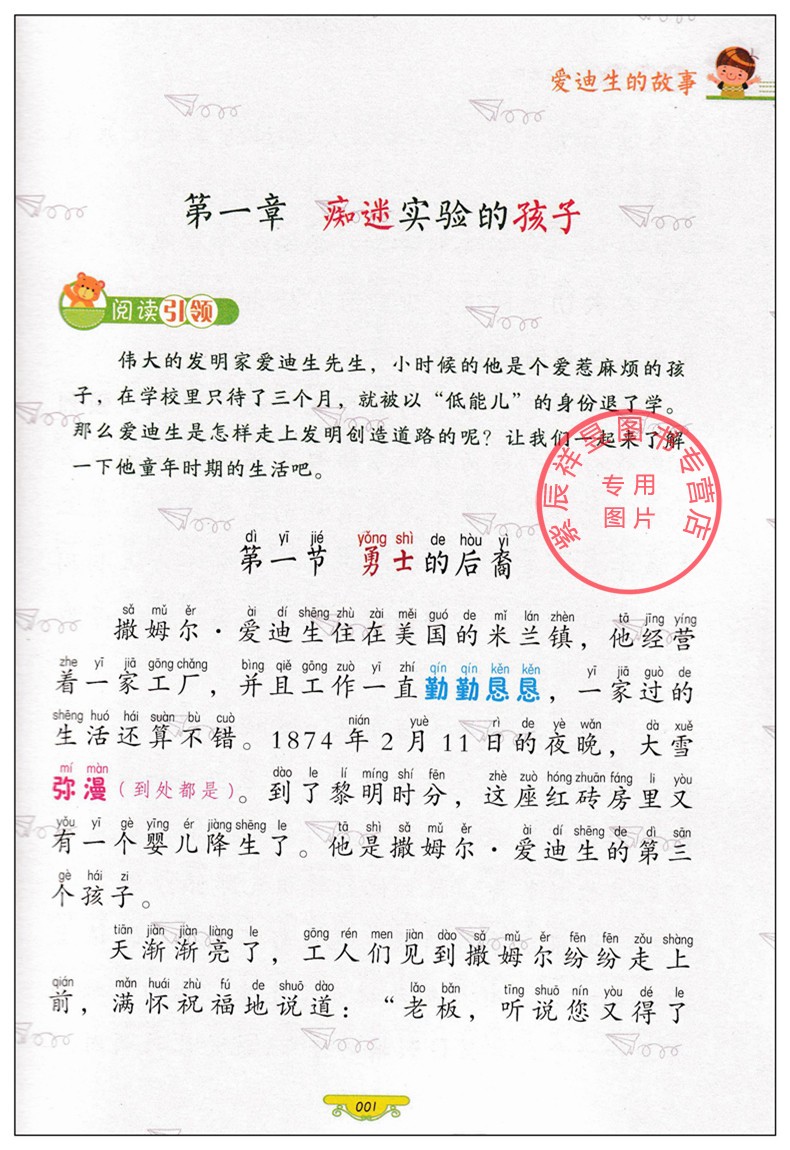 爱迪生的故事
第一章 痴迷实验的孩子
阅读引领
伟大的发明家爱迪生先生，小时候的他是个爱惹麻烦的孩
子，在学校里只待了三个月，就被以“低能儿”的身份退了学。
那么爱迪生是怎样走上发明创造道路的呢？让我们一起来了解
一下他童年时期的生活吧。
紫辰祥昱图书专营店
专用
图片
dì yī jié yǒng shì de hòu yì
第一节 勇士的后裔
sǎ mǔ ěr ài dí shēng zhù zài měi guó de mǐ lán zhèn tā jīng yíng
撒姆尔·爱迪生住在美国的米兰镇，他经营
zhe yī jiā gōng chǎng bìng qiě gōng zuò yī zhí qín qín kěn kěn yī jiā guò de
着一家工厂，并且工作一直勤勤恳恳，一家过的
shēng huó hái suàn bù cuò nián yuè rì de yè wǎn dà xuě
生活还算不错。1874年2月11日的夜晚，大雪
mí màn dào le lí míng shí fēn zhè zuò hóng zhuān fáng li yòu
弥漫（到处都是）。到了黎明时分，这座红砖房里又
yǒu yī gè yīng ér jiàng shēng le tā shì sǎ mǔ ěr ài dí shēng de dì sān
有一个婴儿降生了。他是撒姆尔·爱迪生的第三
gè hái zi
个孩子。
tiān jiàn jiàn liàng le gōng rén men jiàn dào sǎ mǔ ěr fēn fēn zǒu shàng
天渐渐亮了，工人们见到撒姆尔纷纷走上
qián mǎn huái zhù fú de shuō dào lǎo bǎn tīng shuō nín yòu dé le
前，满怀祝福地说道：“老板，听说您又得了
001